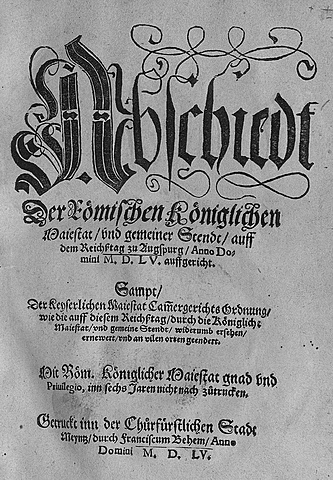 Abschiedt
Der Römischen Königlichen
Maiestat/ vnd gemeiner Stendt/ auff
dem Reichßtag zu Augspurg/ Anno Do-
mini M. D. LV. auffgericht.
Sampt/
Der Keyserlichen Maiestat Cam̃ergerichts Ordnung/
wie die auff diesem Reichßtag/ durch die Königliche
Maiestat/ vnd gemeine Stende/ widerumb ersehen/
ernewert/ vnd an vilen orten geendert.
Mit Röm. Königlicher Maiestat gnad vnd
Priuilegio, inn sechs Jaren nicht nach zůtrucken.
Getruckt inn der Churfürstlichen Stadt
Meyntz/ durch Franciscum Behem/ Anno
Domini M. D. LV.